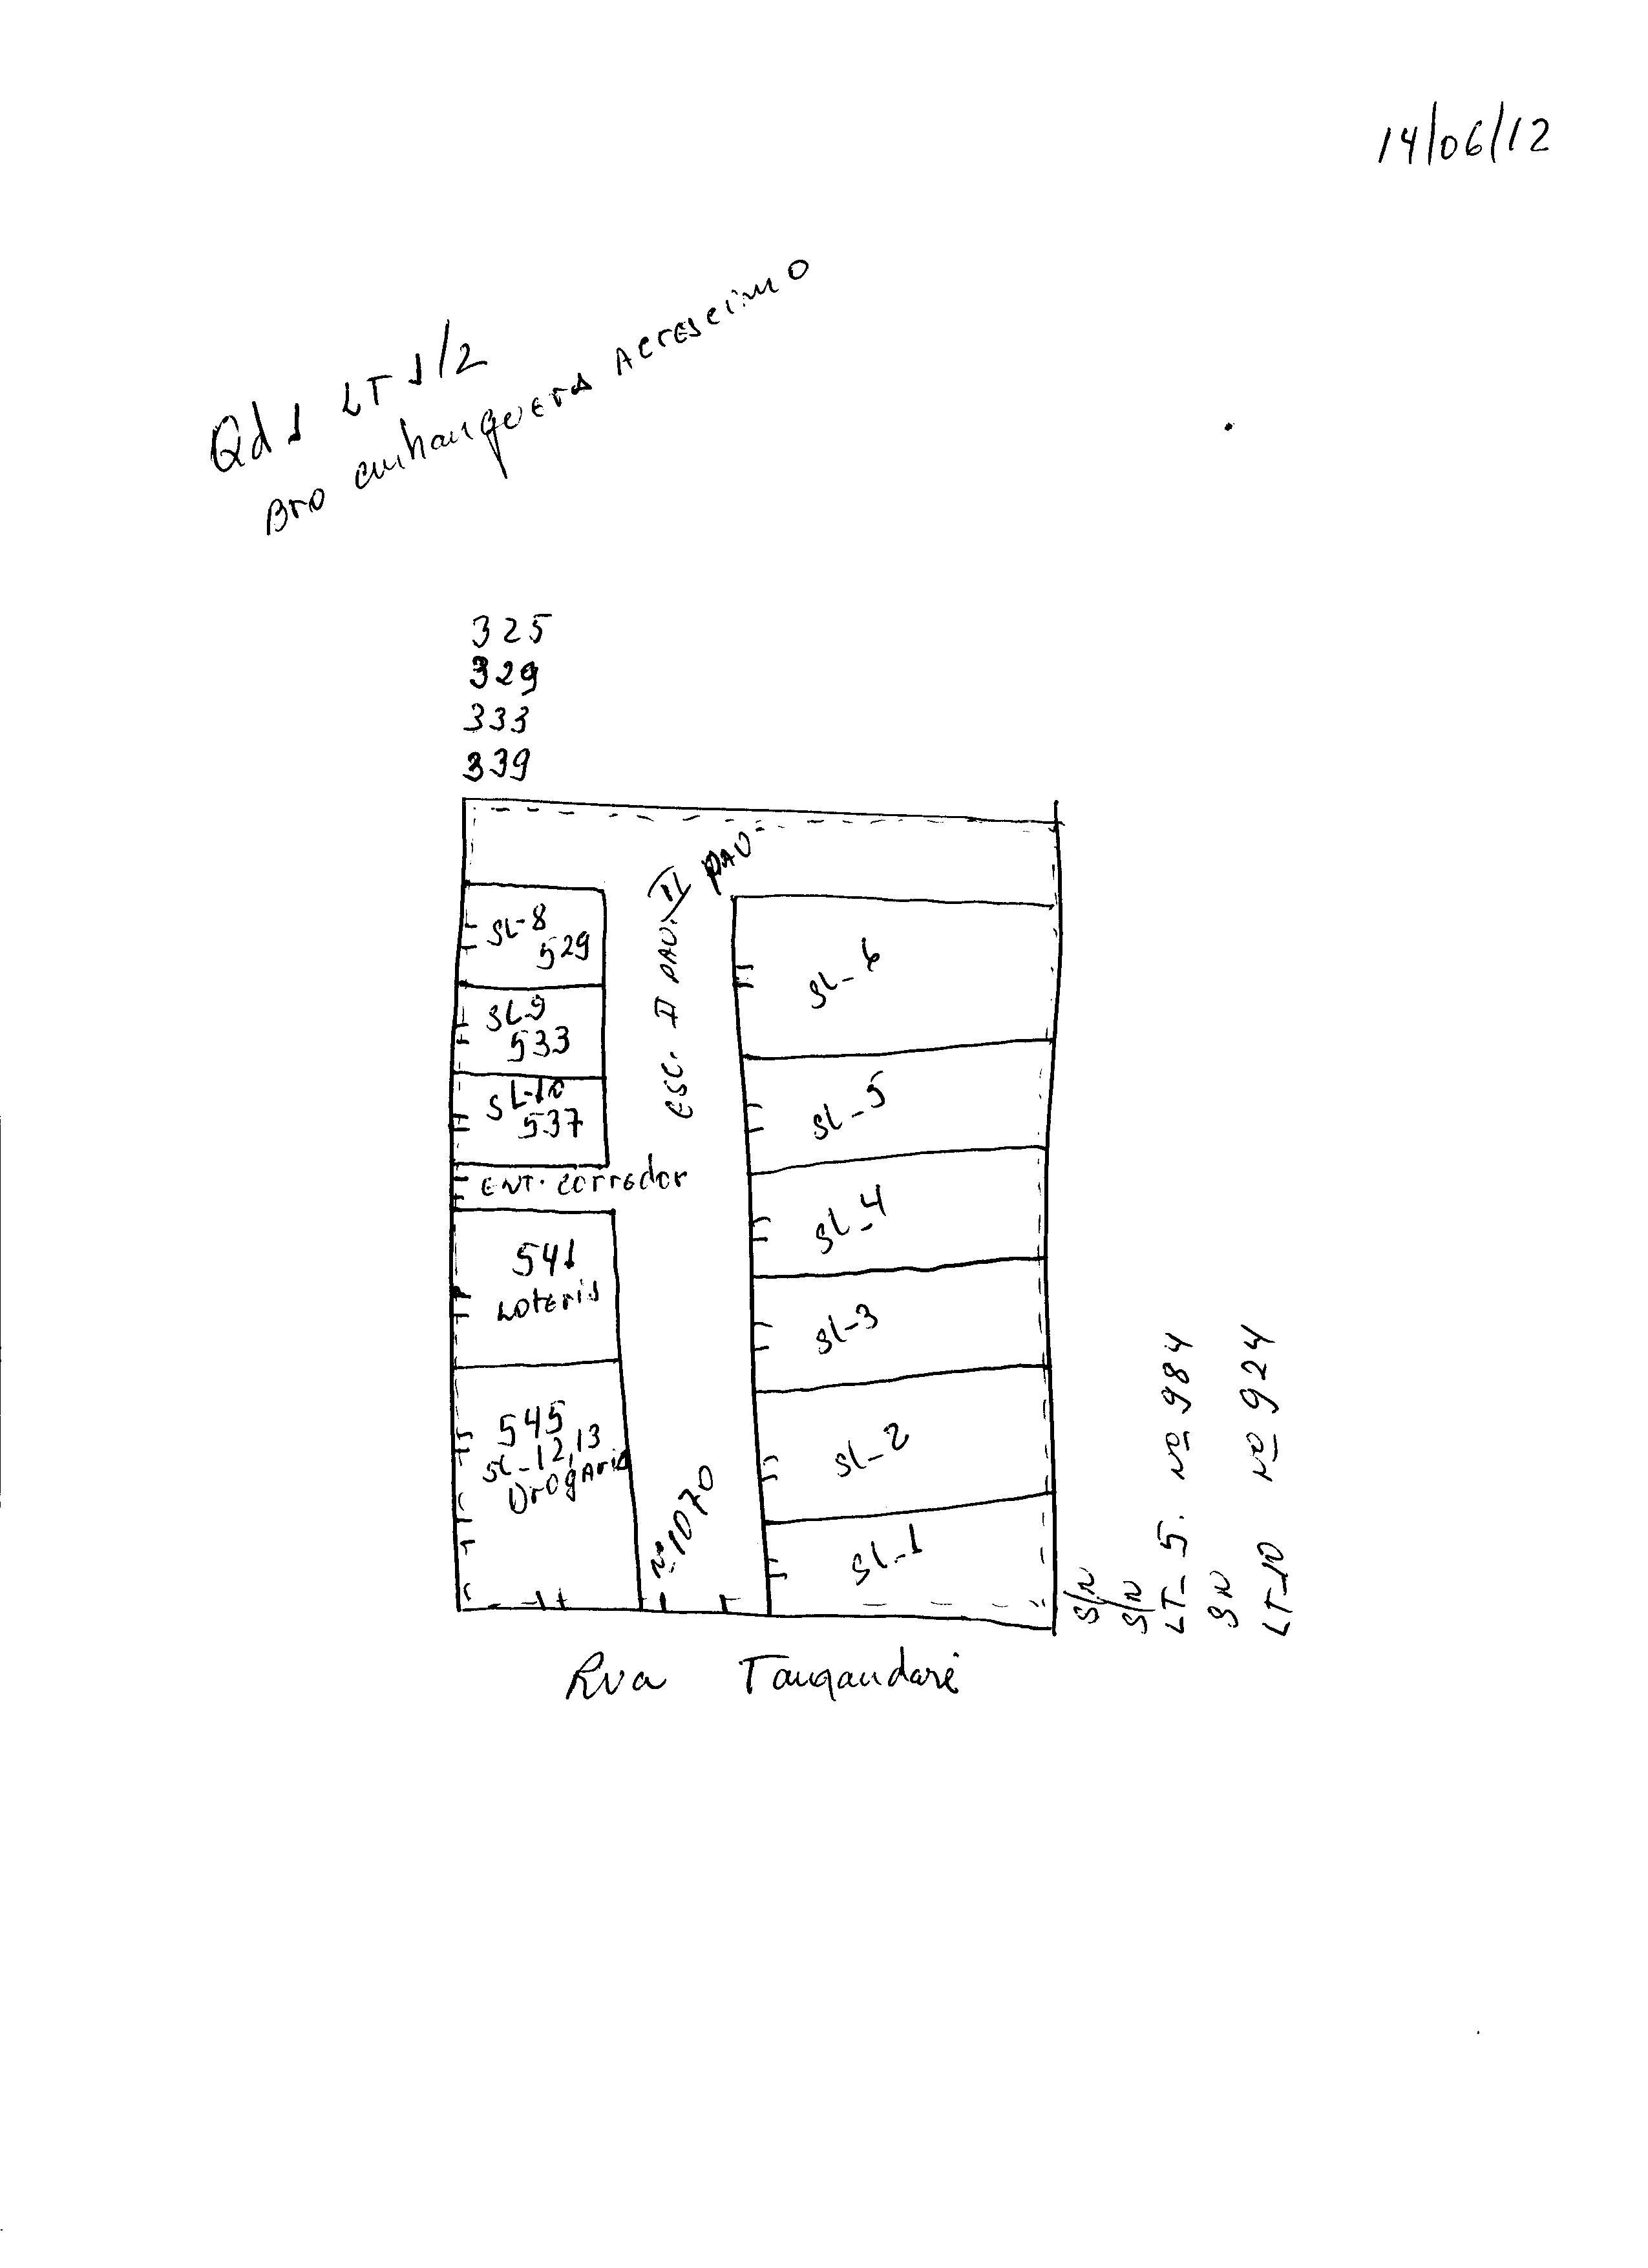 14/06/12
Qd 1 LT 1/2
Bro anhanguera Acrescimo
325
329
333
339
II PAV
ESC. II PAV.
SL-8
529
SL-9
533
SL-10
537
ENT. corredor
541
Loteria
545
SL-12,13
Drogaria
Nº 1070
SL-6
SL-5
SL-4
SL-3
SL-2
SL-1
S/N
S/N
LT-5. Nº 984
SN
LT-10 Nº 924
Rua